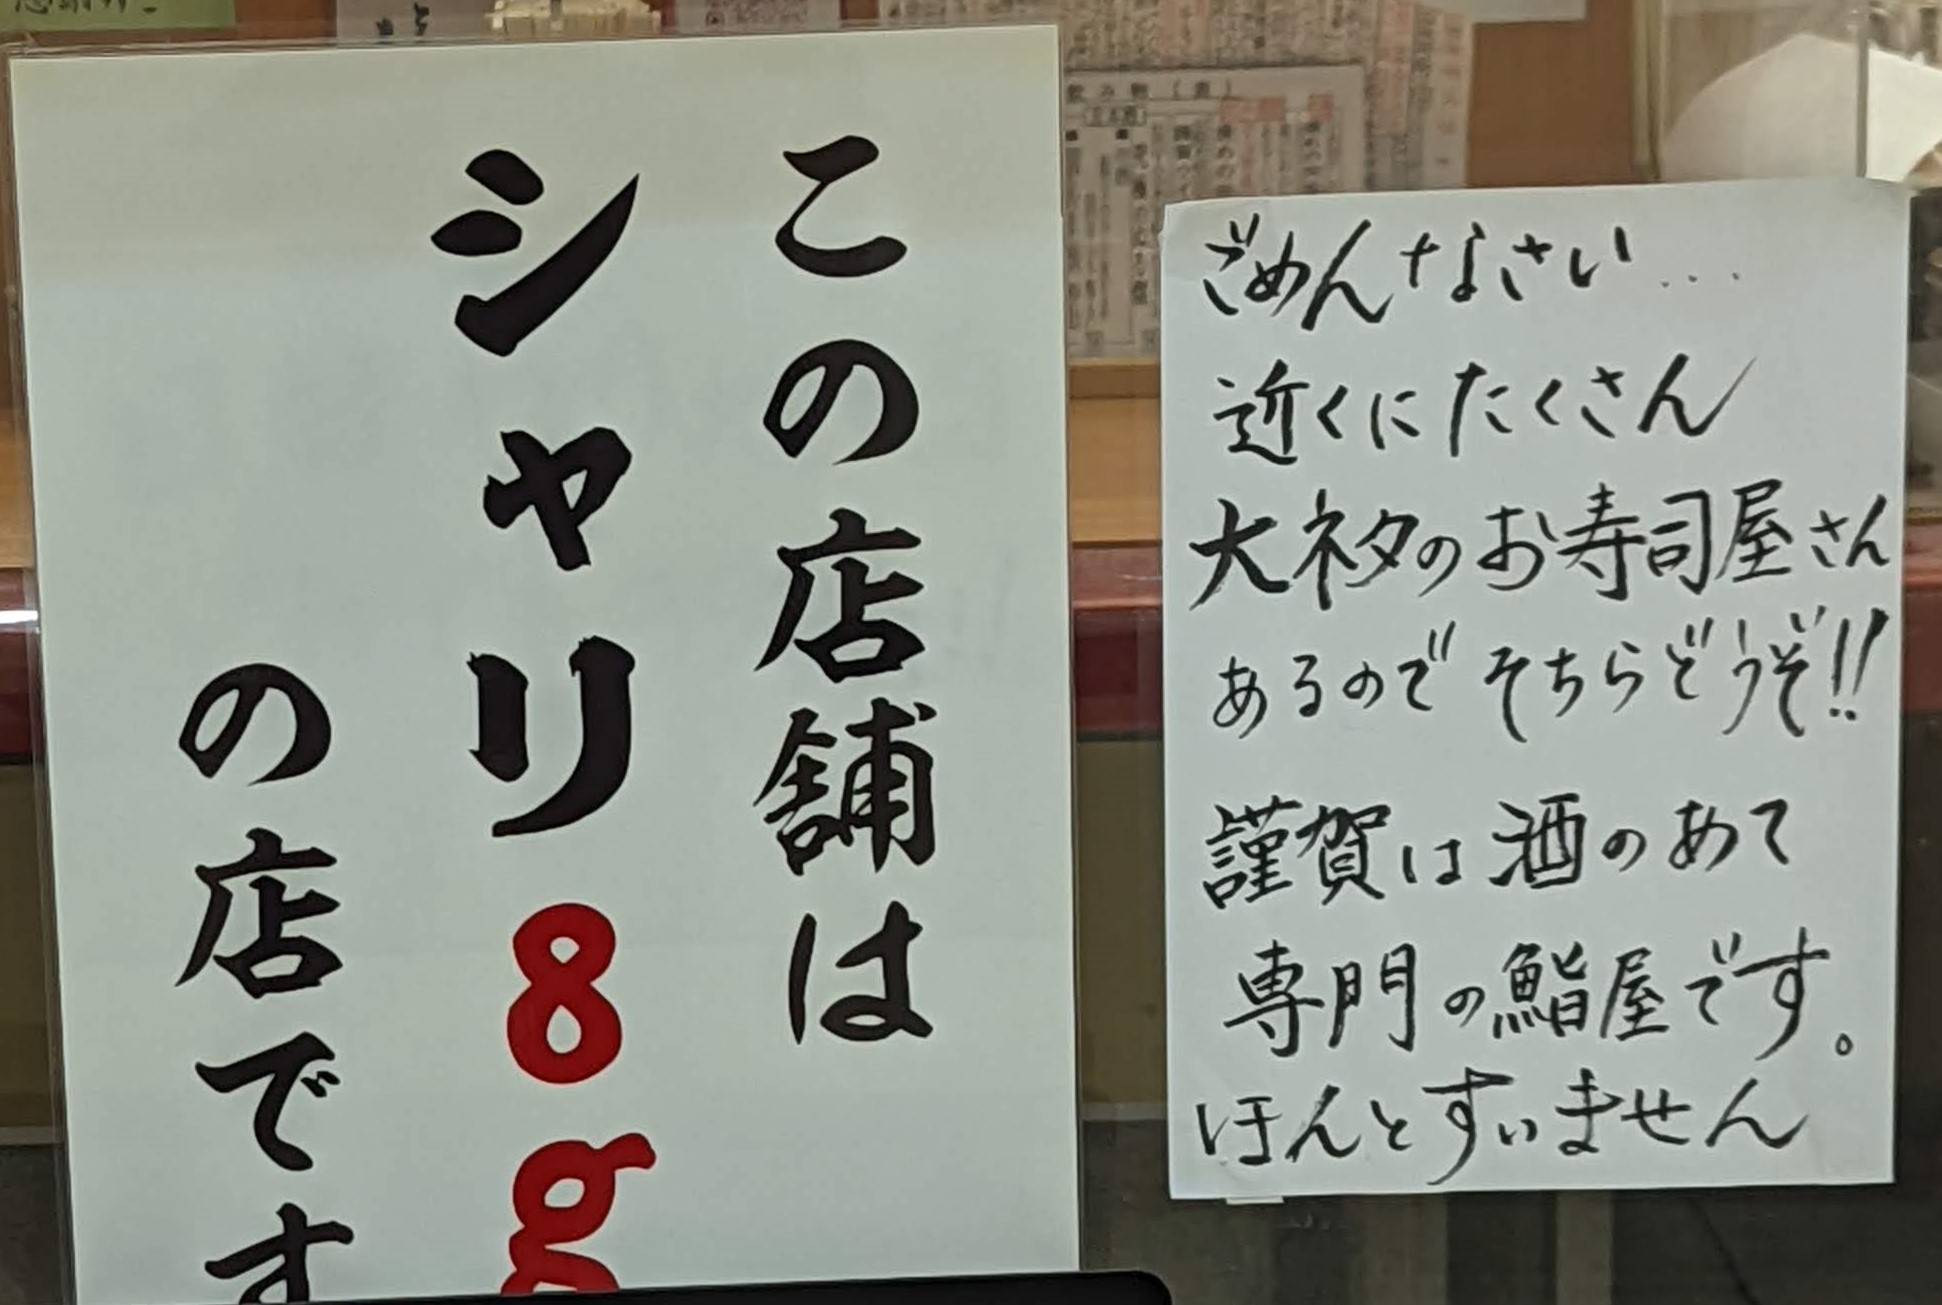 この店舗は
シャリ8g
の店です
ごめんなさい...
近くにたくさん
大ネタのお寿司屋さん
あるのでそちらどうぞ!!
謹賀は酒のあて
専門の鮨屋です。
ほんとすいません